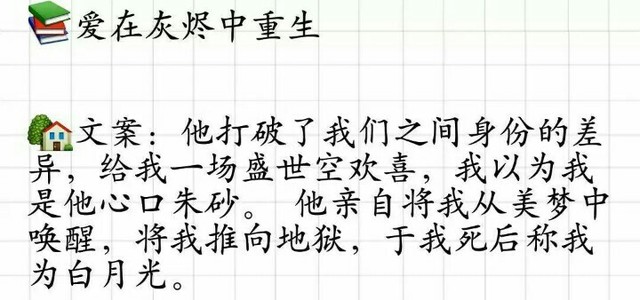 📚爱在灰烬中重生
🏡文案：他打破了我们之间身份的差
异，给我一场盛世空欢喜，我以为我
是他心口朱砂。 他亲自将我从美梦中
唤醒，将我推向地狱，于我死后称我
为白月光。